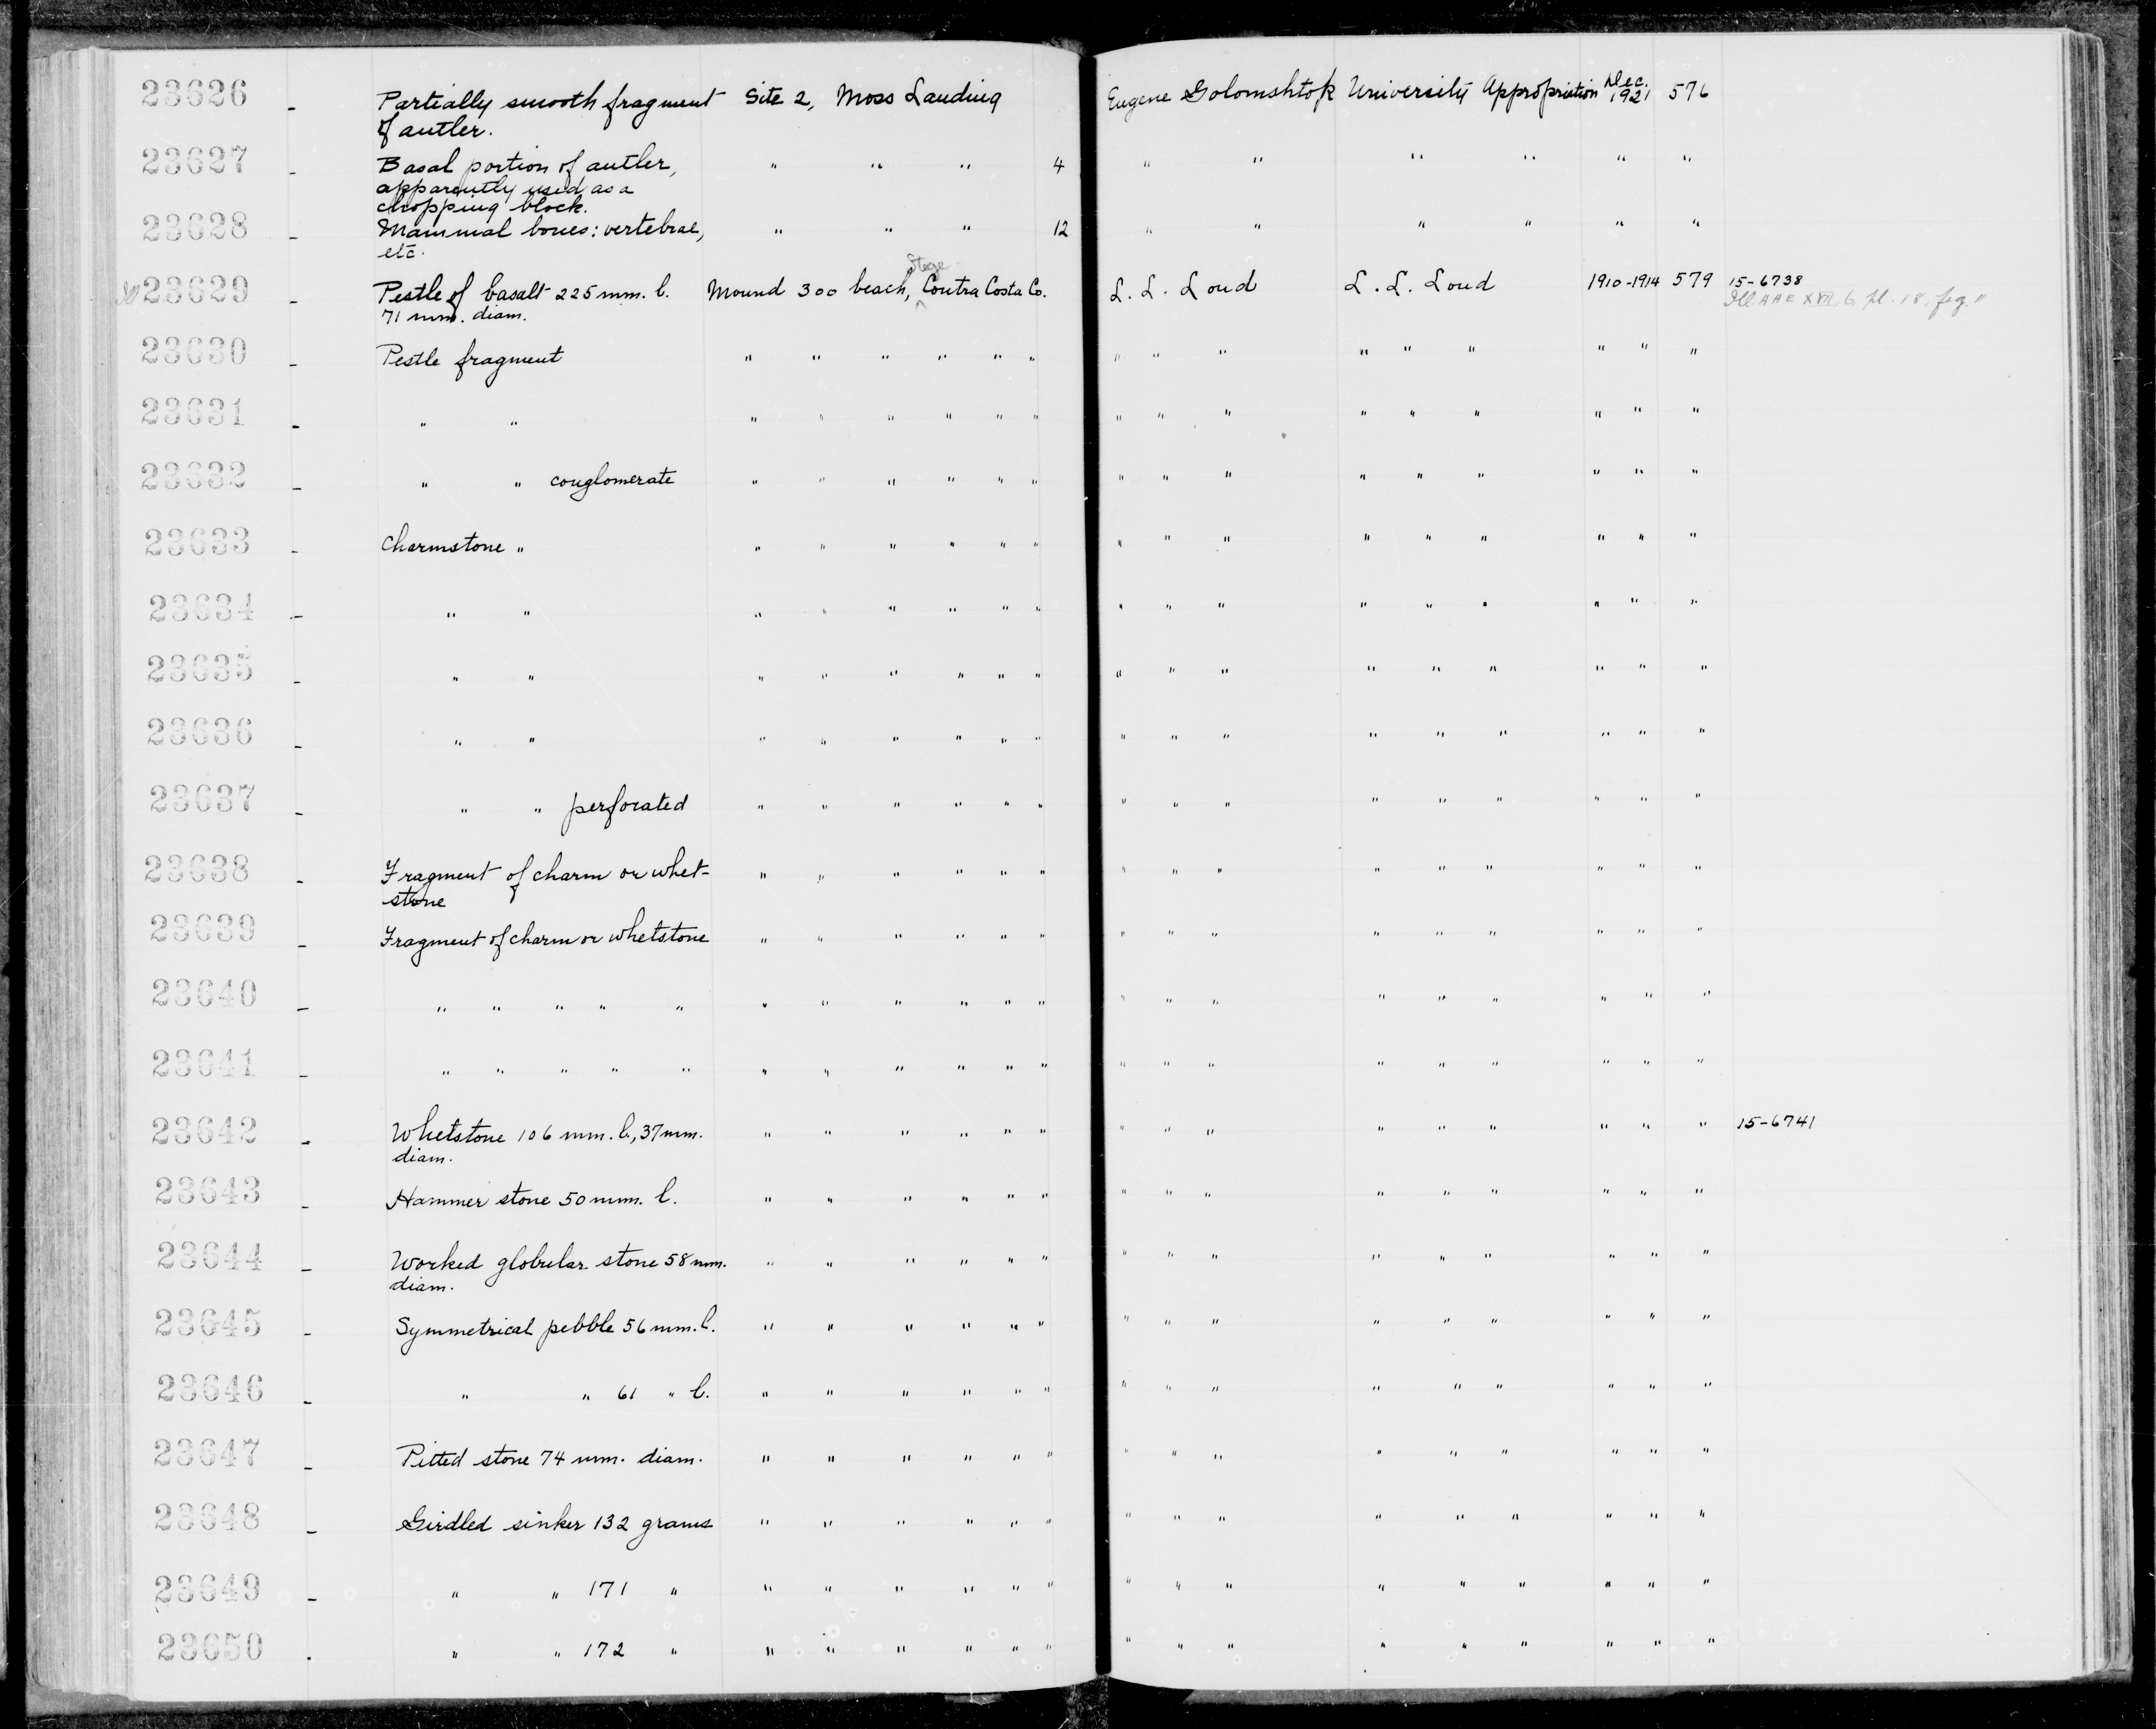 23626 - Partially smooth fragment Site 2, Moss Landing Eugene Golomshtok University Appropriation Dec. 1921 576
of antler.
23627 - Basal portion of antler, " " " 4 " " " " " "
apparently used as a
chopping block.
23628 - Mammal bones: vertebrae, " " " 12 " " " " " "
etc.
Stege
Ill 23629 - Pestle of basalt 225 mm. l. Mound 300 beach, ^ Contra Costa Co. L. L. Loud L. L. Loud 1910-1914 579 15-6738
71 mm. diam. Ill. AAE XVII, 6, pl. 18, fig. "
23630 - Pestle fragment " " " " " " " " " " " " " " "
23631 - " " " " " " " " " " " " " " " " "
23632 - " " conglomerate " " " " " " " " " " " " " " "
23633 - Charmstone " " " " " " " " " " " " " " " "
23634 - " " " " " " " " " " " " " " " " "
23635 - " " " " " " " " " " " " " " " " "
23636 - " " " " " " " " " " " " " " " " "
23637 - " " perforated " " " " " " " " " " " " " " "
23638 - Fragment of charm or whet- " " " " " " " " " " " " " " "
stone
23639 - Fragment of charm or whetstone " " " " " " " " " " " " " " "
23640 - " " " " " " " " " " " " " " " " " " " "
23641 - " " " " " " " " " " " " " " " " " " " "
23642 - Whetstone 106 mm. l., 37 mm. " " " " " " " " " " " " " " " 15-6741
diam.
23643 - Hammer stone 50 mm. l. " " " " " " " " " " " " " " "
23644 - Worked globular stone 58 mm. " " " " " " " " " " " " " " "
diam.
23645 - Symmetrical pebble 56 mm. l. " " " " " " " " " " " " " " "
23646 - " " 61 " l. " " " " " " " " " " " " " " "
23647 - Pitted stone 74 mm. diam. " " " " " " " " " " " " " " "
23648 - Girdled sinker 132 grams " " " " " " " " " " " " " " "
23649 - " " 171 " " " " " " " " " " " " " " " "
23650 - " " 172 " " " " " " " " " " " " " " " "